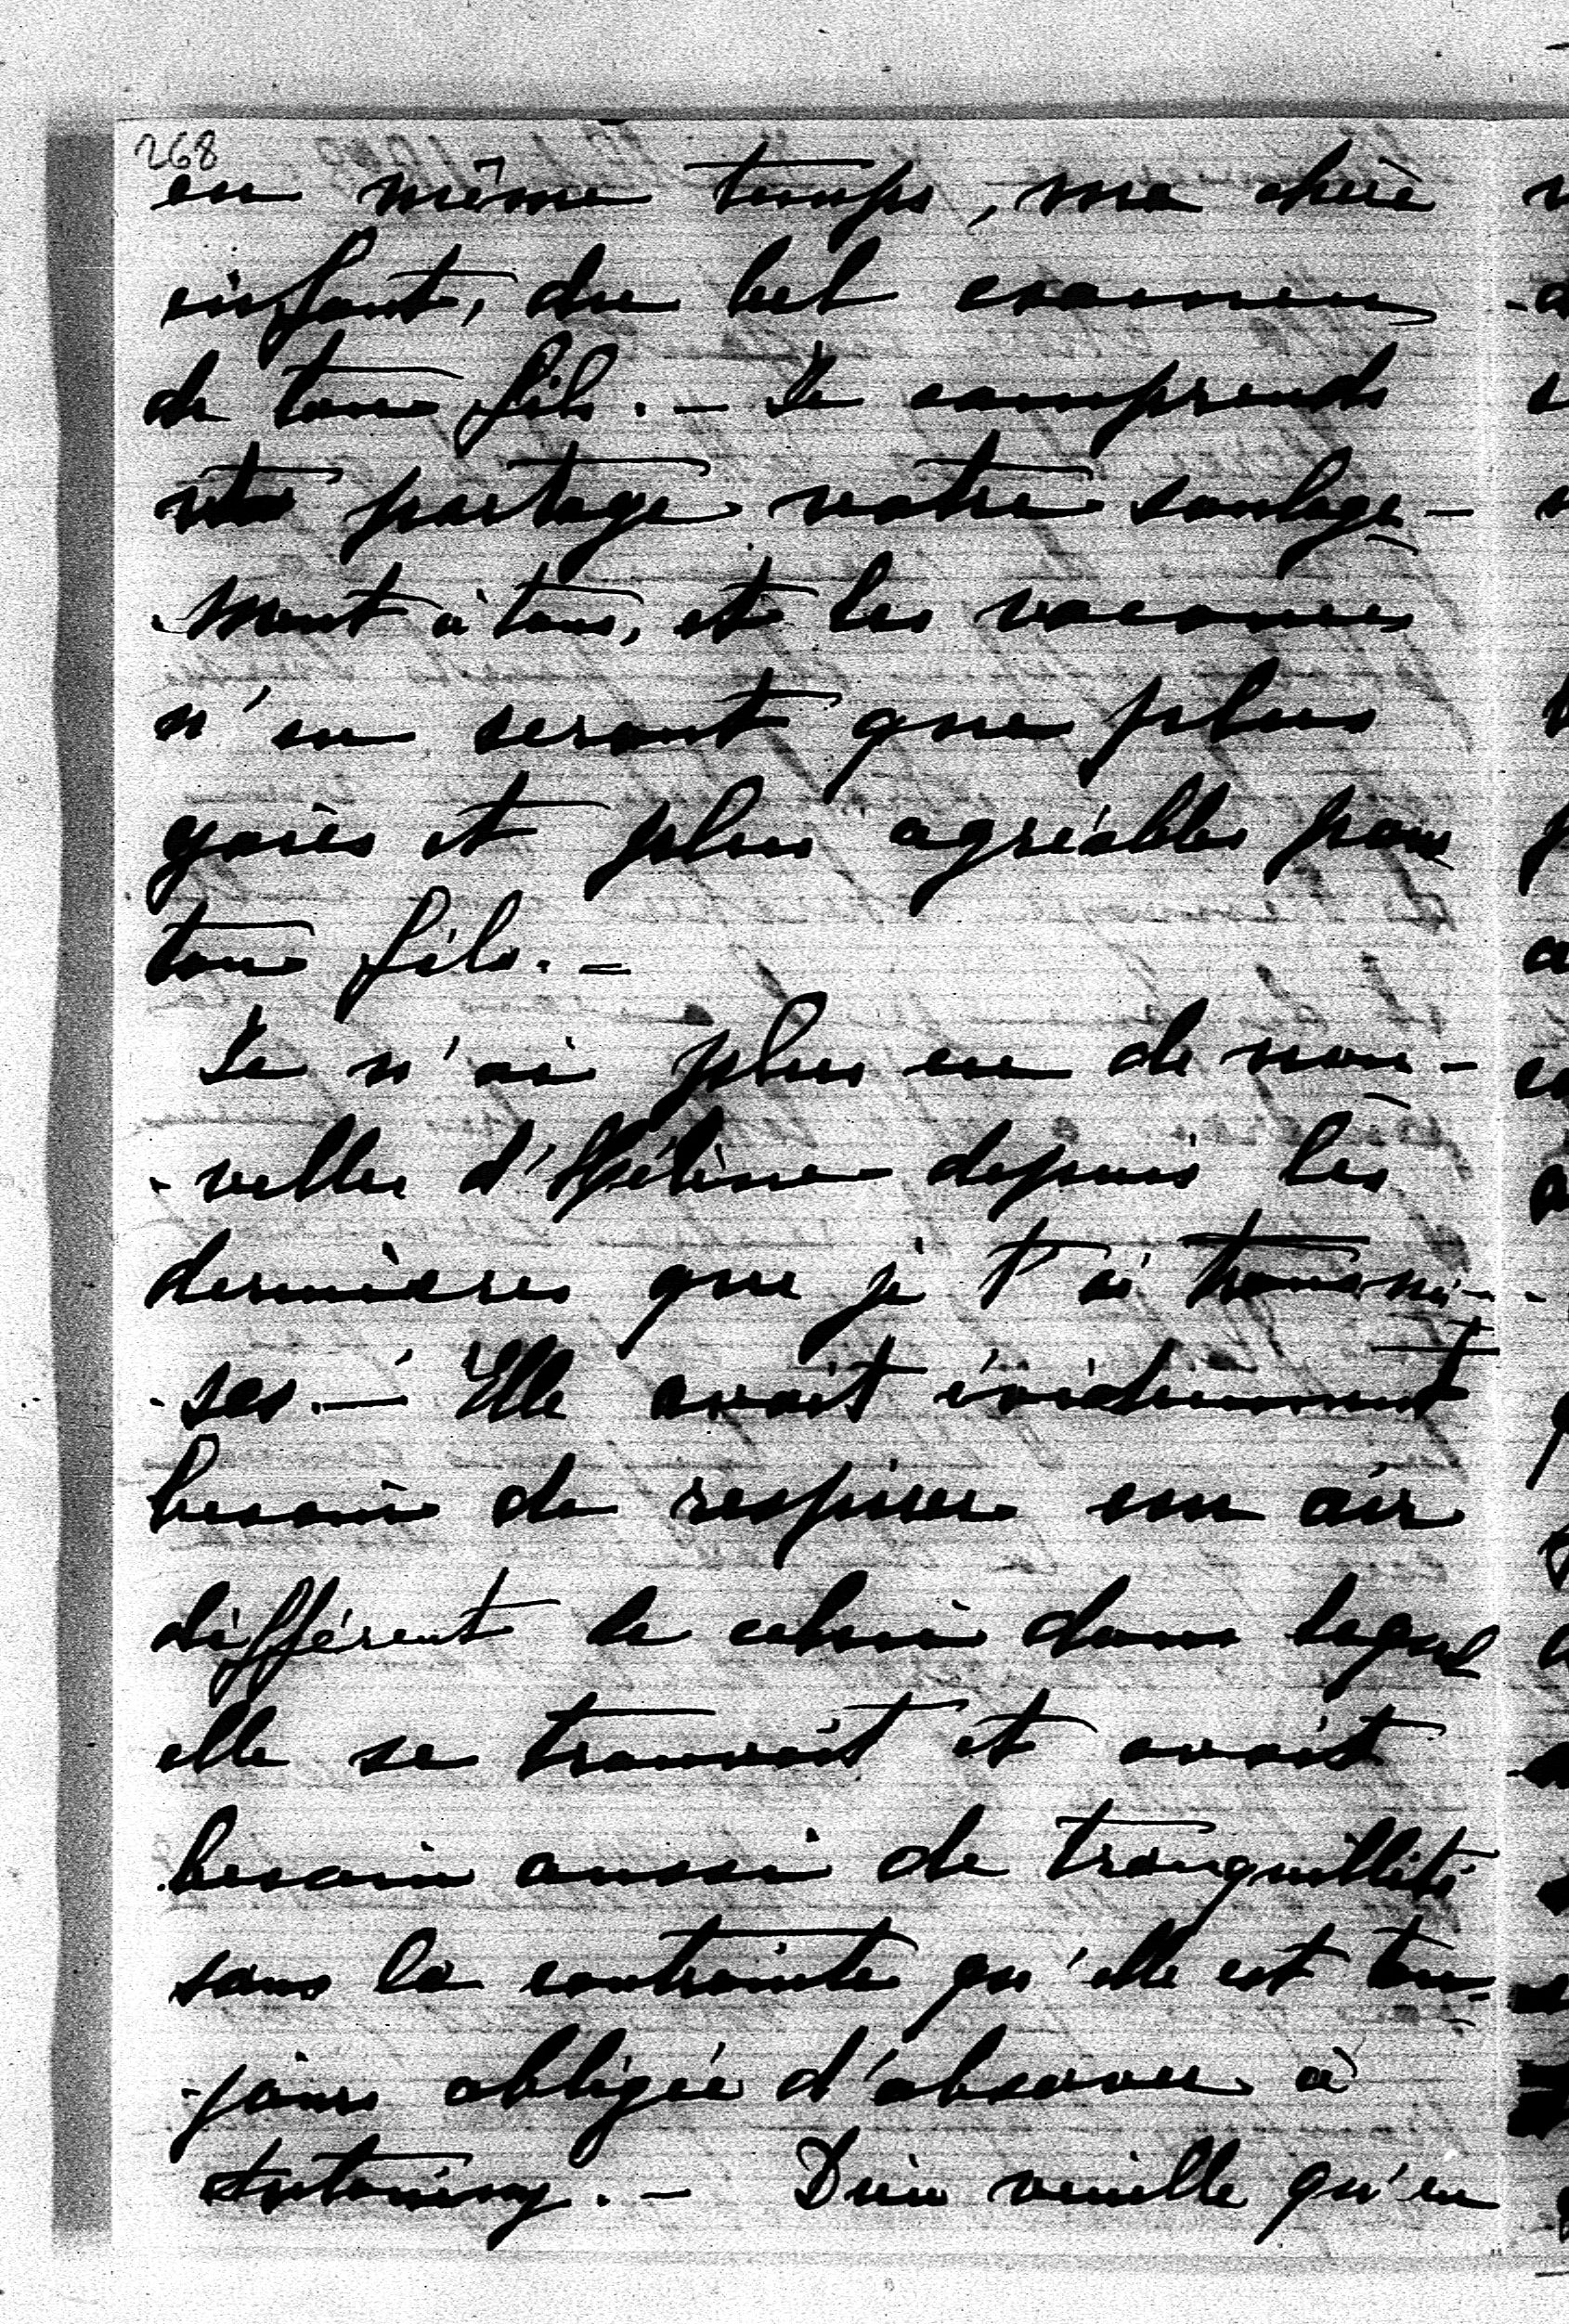 268
en même temps, ma chère
enfant, du bel examen
de ton fils. — Je comprends
et partage votre soulage-
-ment à tous, et les vacances
n'en seront que plus
gaies et plus agréables pour
ton fils. —
Je n'ai plus eu de nou-
-velles d'Hélène depuis les
dernières que je t'ai transmi-
-ses. — Elle avait évidemment
besoin de respirer un air
différent de celui dans lequel
elle se trouvait et avait
besoin aussi de tranquillité
sans la contrainte qu'elle est tou-
-jours obligée d'observer à
Antoniny. — Dieu veuille qu'en